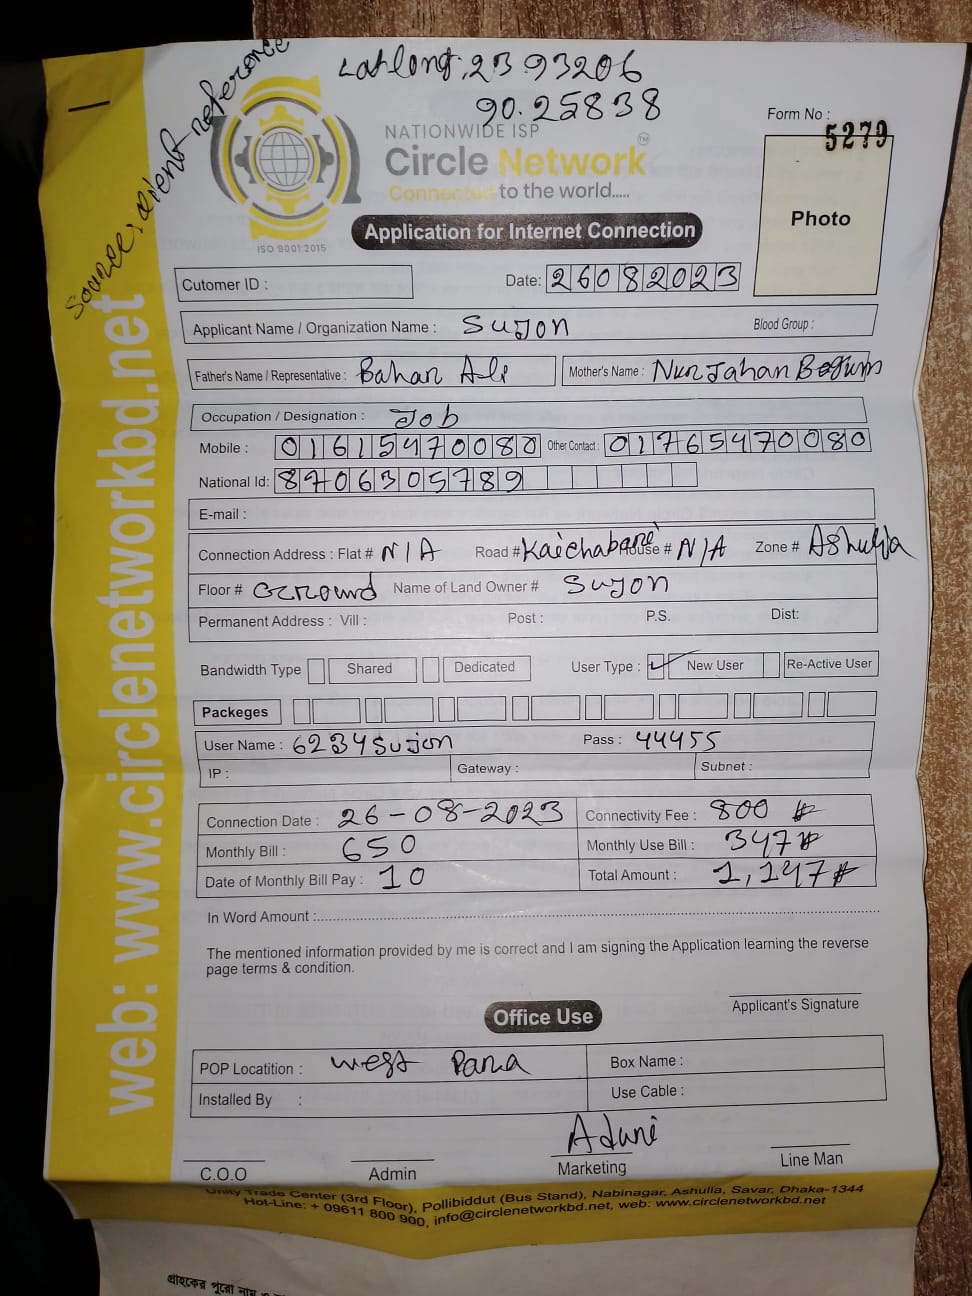 Source: client reference
Latlong: 23.93206
90.25838
Form No :
5279
NATIONWIDE ISP
Circle Network™
Connected to the world.....
ISO 9001:2015
Photo
Application for Internet Connection
Cutomer ID :
Date: 26082023
Applicant Name / Organization Name : Sujon Blood Group :
Father's Name / Representative : Bahar Ali Mother's Name : Nur Jahan Begum
Occupation / Designation : Job
Mobile : 01615470080 Other Contact : 01765470080
National Id: 8706305789
E-mail :
Connection Address : Flat # N/A Road # Kaichabari House # N/A Zone # Ashulia
Floor # Ground Name of Land Owner # Sujon
Permanent Address : Vill : Post : P.S. Dist:
Bandwidth Type Shared Dedicated User Type : ✓ New User Re-Active User
Packeges
User Name : 6234Sujon Pass : 44455
IP : Gateway : Subnet :
Connection Date : 26-08-2023 Connectivity Fee : 800
Monthly Bill : 650 Monthly Use Bill : 347
Date of Monthly Bill Pay : 10 Total Amount : 1,147
In Word Amount :
The mentioned information provided by me is correct and I am signing the Application learning the reverse
page terms & condition.
Applicant's Signature
Office Use
POP Locatition : West Para Box Name :
Installed By : Use Cable :
C.O.O Admin Marketing Line Man
Unity Trade Center (3rd Floor), Pollibiddut (Bus Stand), Nabinagar, Ashulia, Savar, Dhaka-1344
Hot-Line: + 09611 800 900, info@circlenetworkbd.net, web: www.circlenetworkbd.net
web: www.circlenetworkbd.net
গ্রাহকের পুরো নাম